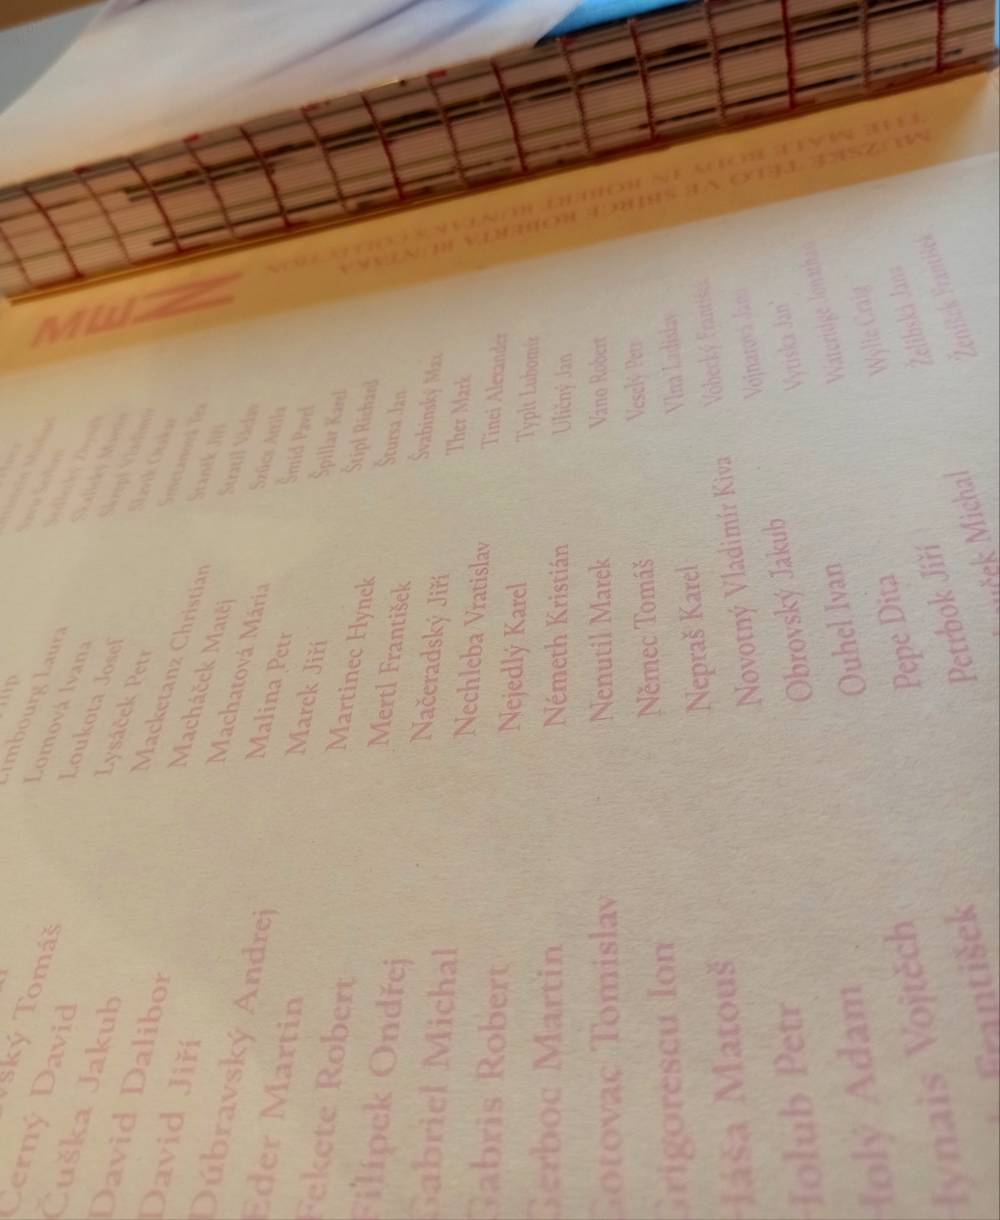 MUŽSKÉ TĚLO VE SBÍRCE ROBERTA RUNTÁKA
THE MALE BODY IN ROBERT RUNTÁK'S COLLECTION
MEN
Tomáš
Černý David
Čuška Jakub
David Dalibor
David Jiří
Dúbravský Andrej
Eder Martin
Fekete Robert
Filípek Ondřej
Gabriel Michal
Gabris Robert
Gerboc Martin
Gorovac Tomislav
Grigorescu Ion
Háša Matouš
Holub Petr
Holý Adam
Hynais Vojtěch
František
Limbourg Laura
Lomová Ivana
Loukota Josef
Lysáček Petr
Macketanz Christian
Macháček Matěj
Machatová Mária
Malina Petr
Marek Jiří
Martinec Hynek
Mertl František
Načeradský Jiří
Nechleba Vratislav
Nejedlý Karel
Németh Kristián
Nenutil Marek
Němec Tomáš
Nepraš Karel
Novotný Vladimír Kiva
Obrovský Jakub
Ouhel Ivan
Pepe Dita
Petrbok Jiří
Michal
Slavík Otakar
Staněk Jiří
Stratil Václav
Szűcs Attila
Šmíd Pavel
Špillar Karel
Štipl Richard
Štursa Jan
Švabinský Max
Ther Mark
Tinei Alexander
Typlt Lubomír
Uličný Jan
Vano Robert
Veselý Petr
Vlna Ladislav
Vobecký František
Vojnarová Jana
Vytiska Jan
Wateridge Jonathan
Wylie Craig
Želibská Jana
Ženíšek František